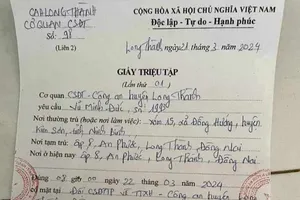 CA H. LONG THÀNH
CƠ QUAN CSĐT
Số: 98
CỘNG HÒA XÃ HỘI CHỦ NGHĨA VIỆT NAM
Độc lập - Tự do - Hạnh phúc
(Liên 2)
Long Thành, ngày 21 tháng 3 năm 2024
GIẤY TRIỆU TẬP
(Lần thứ 01)
Cơ quan CSĐT - Công an huyện Long Thành
yêu cầu Vũ Minh Đức,
Nơi thường trú (hoặc nơi làm việc): xóm 15, xã Đồng Hướng, huyện
Kim Sơn, tỉnh Ninh Bình
Nơi tạm trú: Ấp 8, An Phước, Long Thành, Đồng Nai
Nơi ở hiện nay Ấp 8, An Phước, Long Thành, Đồng Nai
Đúng 08 giờ 00 ngày 22 tháng 03 năm 2024
có mặt tại Đội CSĐTTP về TTXH - Công an huyện